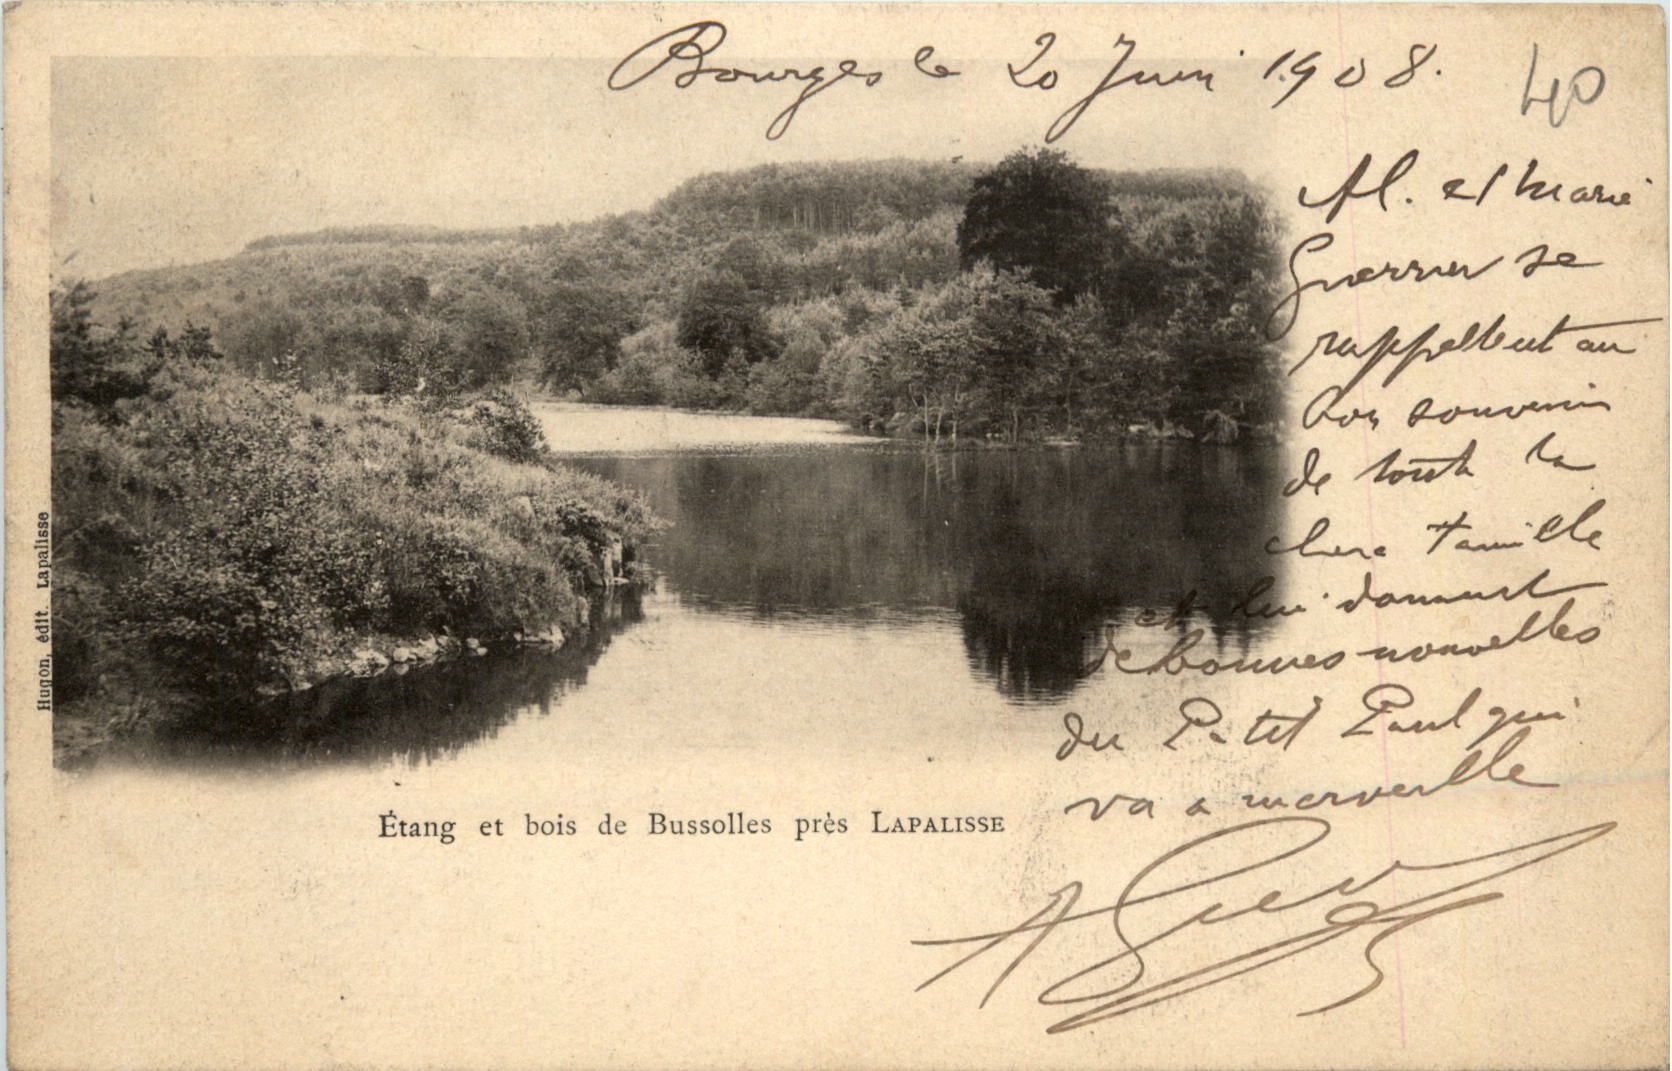 Bourges le 20 Juin 1908.
40
Al. et Marie
Guerrier se
rappellent au
bon souvenir
de toute la
chere famille
et lui donnent
de bonnes nouvelles
du Petit Paul qui
va a merveille
Étang et bois de Bussolles près LAPALISSE
Hugon, édit. Lapalisse